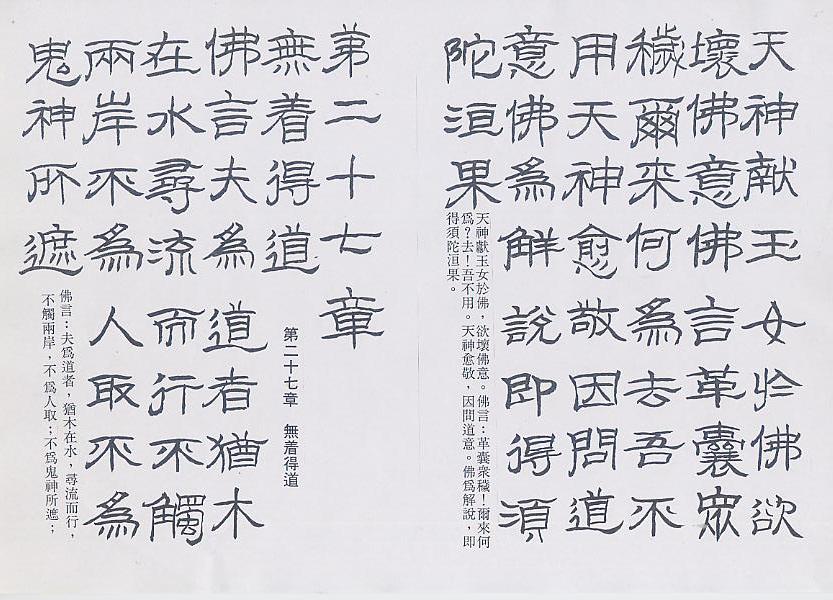 天神献玉女扵佛欲
壞佛意佛言革囊眾
穢爾来何為去吾不
用天神愈敬因問道
意佛為解說即得須
陀洹果
天神獻玉女於佛，欲壞佛意。佛言：革囊衆穢！爾來何
爲？去！吾不用。天神愈敬，因問道意。佛爲解說，即
得須陀洹果。
第二十七章
無着得道
第二十七章　無着得道
佛言夫為道者猶木
在水尋流而行不觸
兩岸不為人取不為
鬼神所遮
佛言：夫爲道者，猶木在水，尋流而行，
不觸兩岸，不爲人取；不爲鬼神所遮；